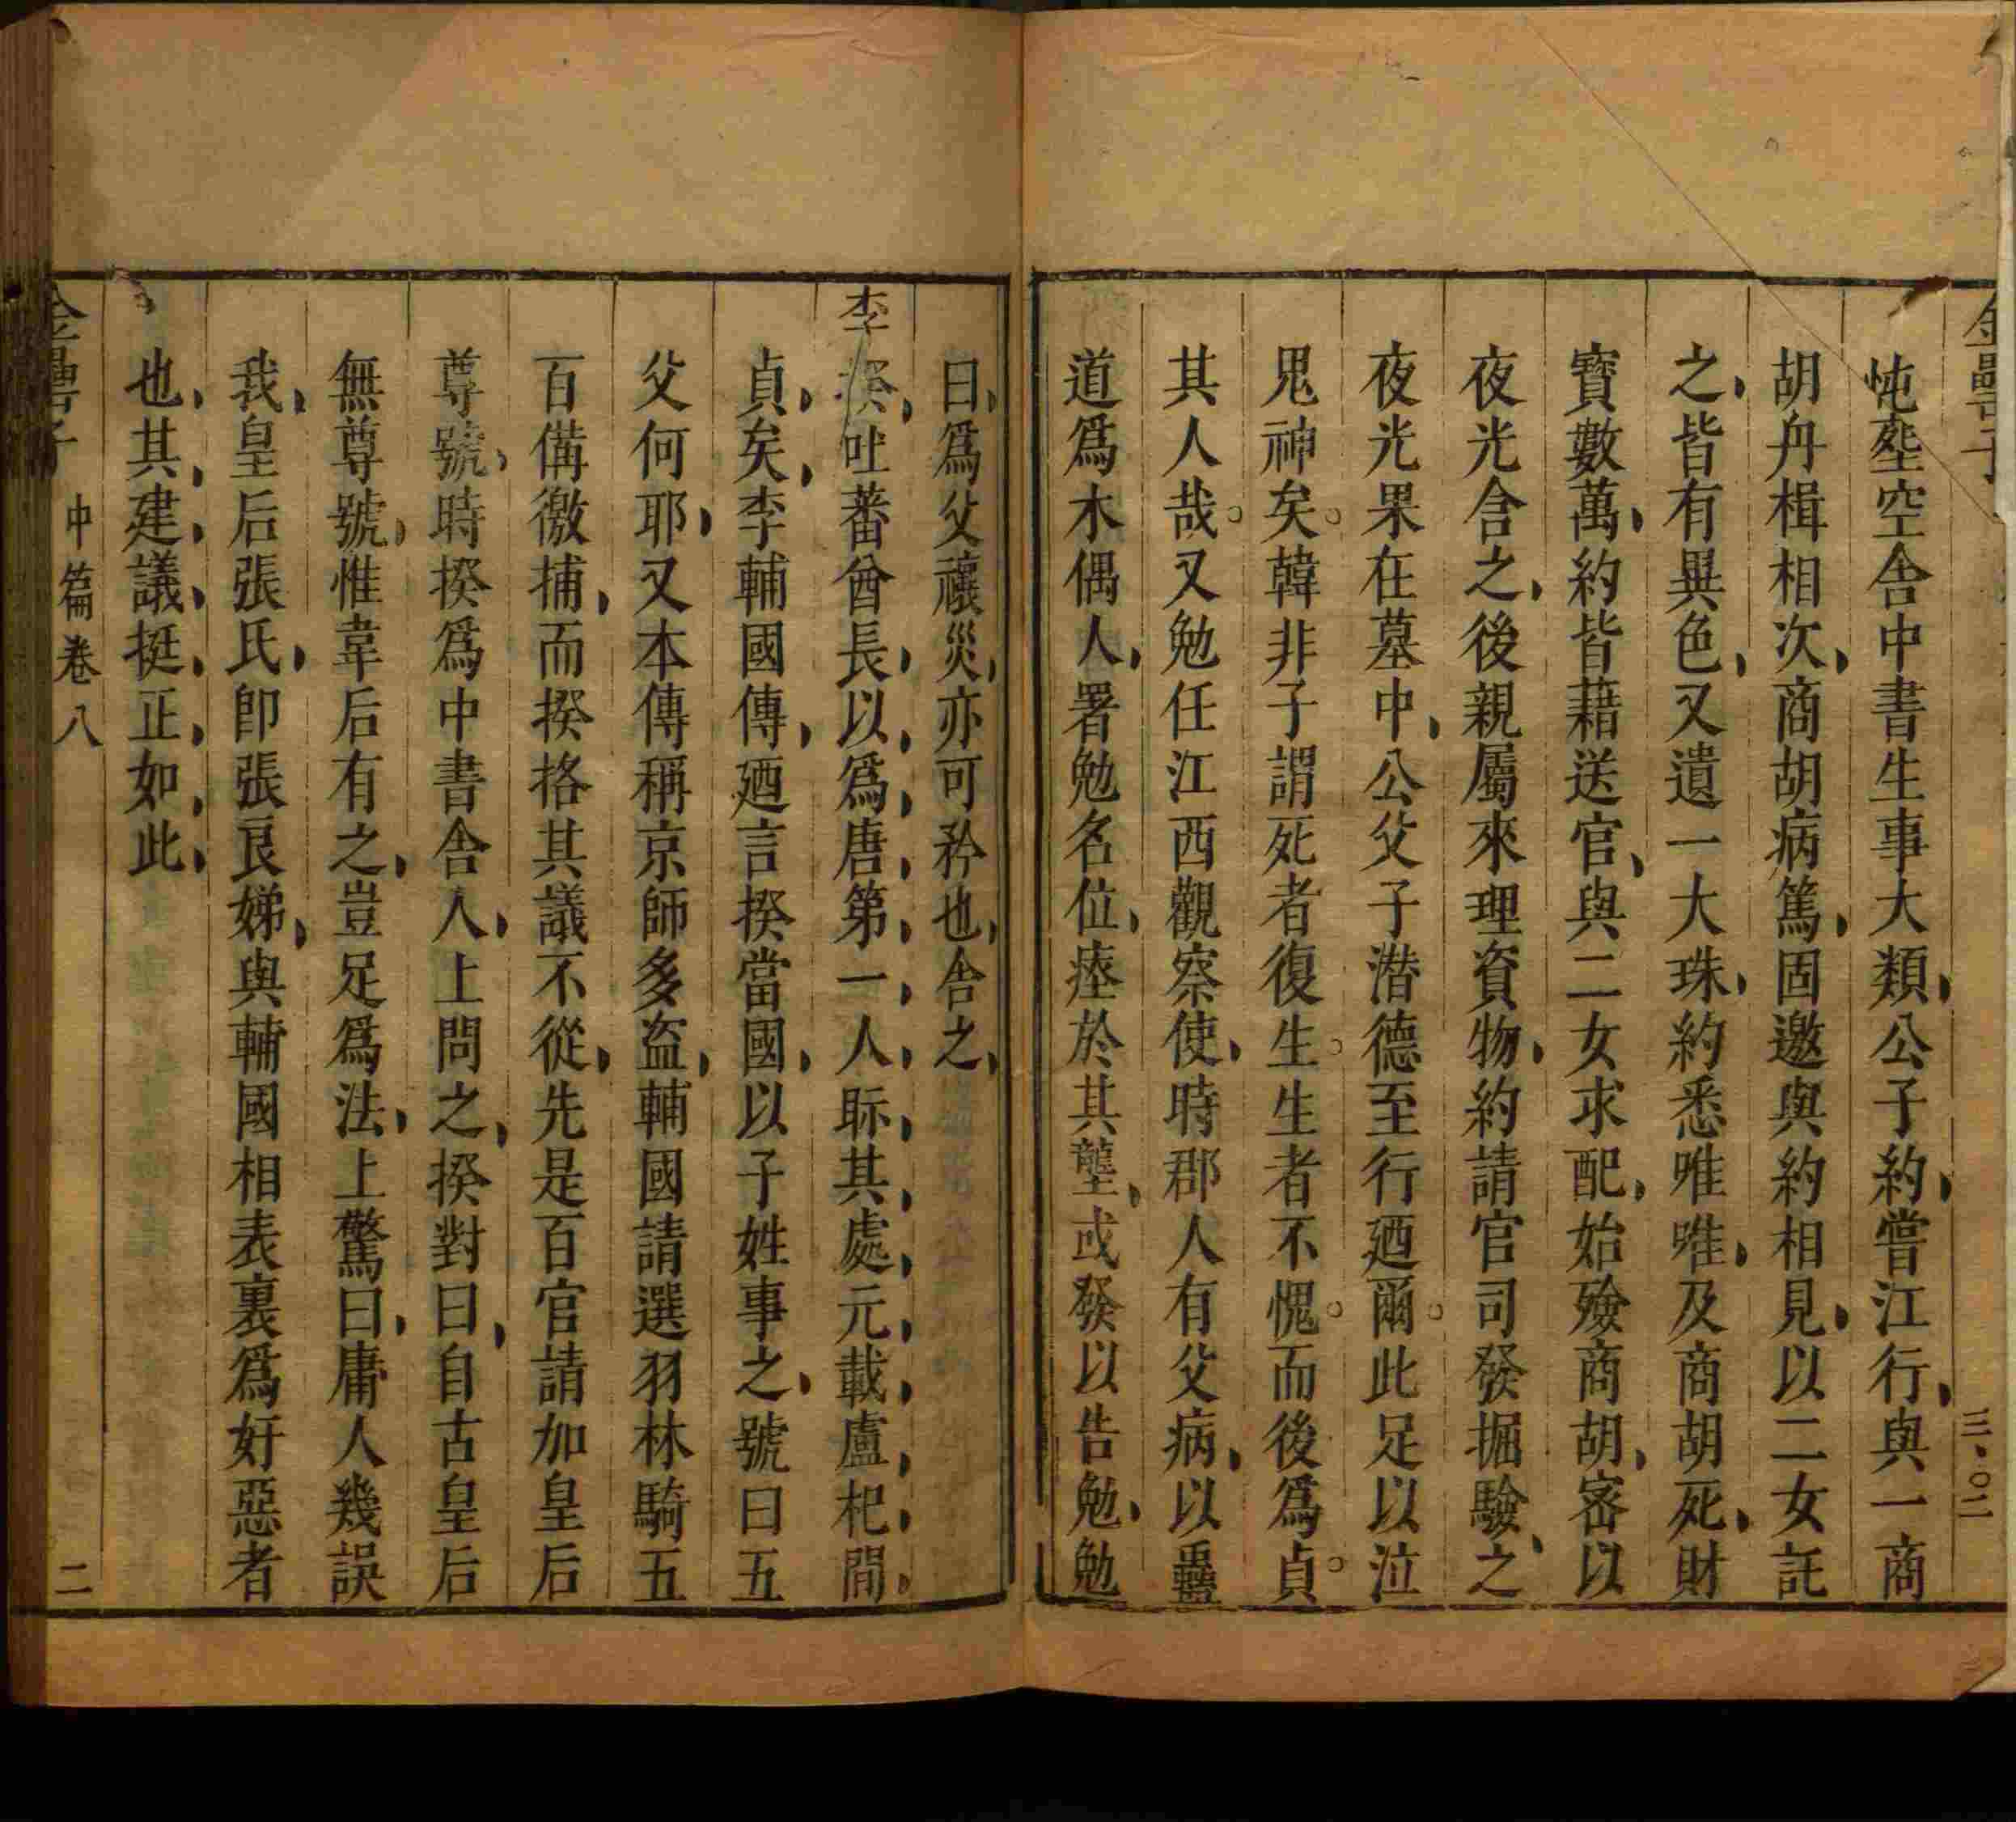 金罍子
三、〇二
忳塟空舎中書生事大類公子約嘗江行與一商
胡舟楫相次商胡病篤固邀與約相見以二女託
之皆有異色又遺一大珠約悉唯唯及商胡死財
寶數萬約皆藉送官與二女求配始殮商胡宻以
夜光含之後親屬來理資物約請官司發掘驗之
夜光果在墓中公父子潛德至行廼爾此足以泣
鬼神矣韓非子謂死者復生生者不愧而後爲貞
其人哉又勉任江西觀察使時郡人有父病以蠱
道爲木偶人署勉名位瘞於其壟或發以告勉勉
曰爲父禳災亦可矜也舎之
李揆吐蕃酋長以爲唐第一人眎其處元載盧杞間
貞矣李輔國傳廼言揆當國以子姓事之號曰五
父何耶又本傳稱京師多盗輔國請選羽林騎五
百備徼捕而揆挌其議不從先是百官請加皇后
尊號時揆爲中書舎人上問之揆對曰自古皇后
無尊號惟韋后有之豈足爲法上驚曰庸人幾誤
我皇后張氏卽張良娣與輔國相表裏爲奸惡者
也其建議挺正如此
金罍子 中篇卷八 二